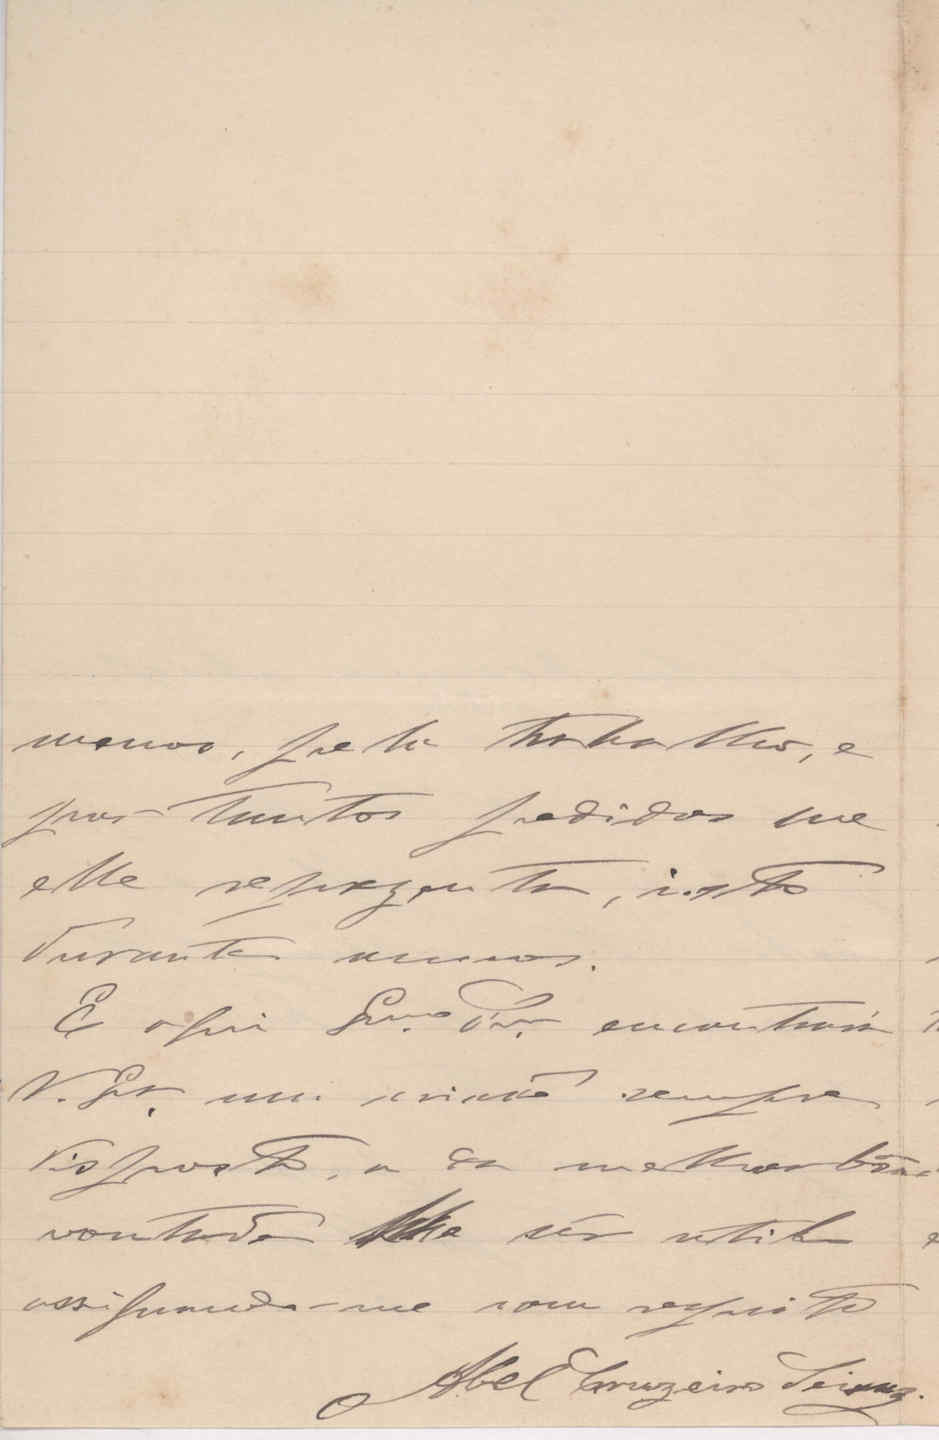 menos, pelo trabalho, e
por tantos pedidos que
elle reprezenta, isto
durante annos.
E aqui Exmo. Snr. encontrará
V. Exa. um criado sempre
disposto, e da melhor bôa
vontade lhe sêr util e
assignando-me com respeito
Abel Cruzeiro Seixas.